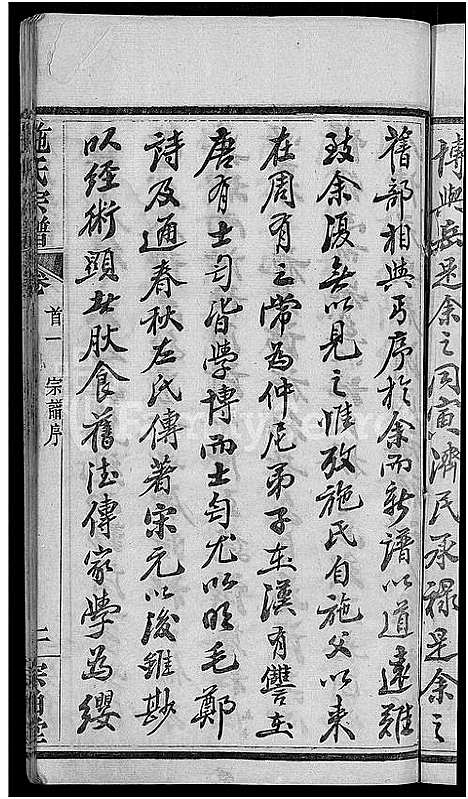 博與岳是余之同寅濟民承祿是余之
舊部相與丐序於余而新譜以道遠難
致余復無以見之惟攷施氏自施父以來
在周有之常為仲尼弟子在漢有讐在
唐有士匄皆學博而士匄尤以明毛鄭
詩及通春秋左氏傳著宋元以後雖尠
以經術顯者然食舊德傳家學為纓
施氏宗譜
卷
首一
宗譜序
二